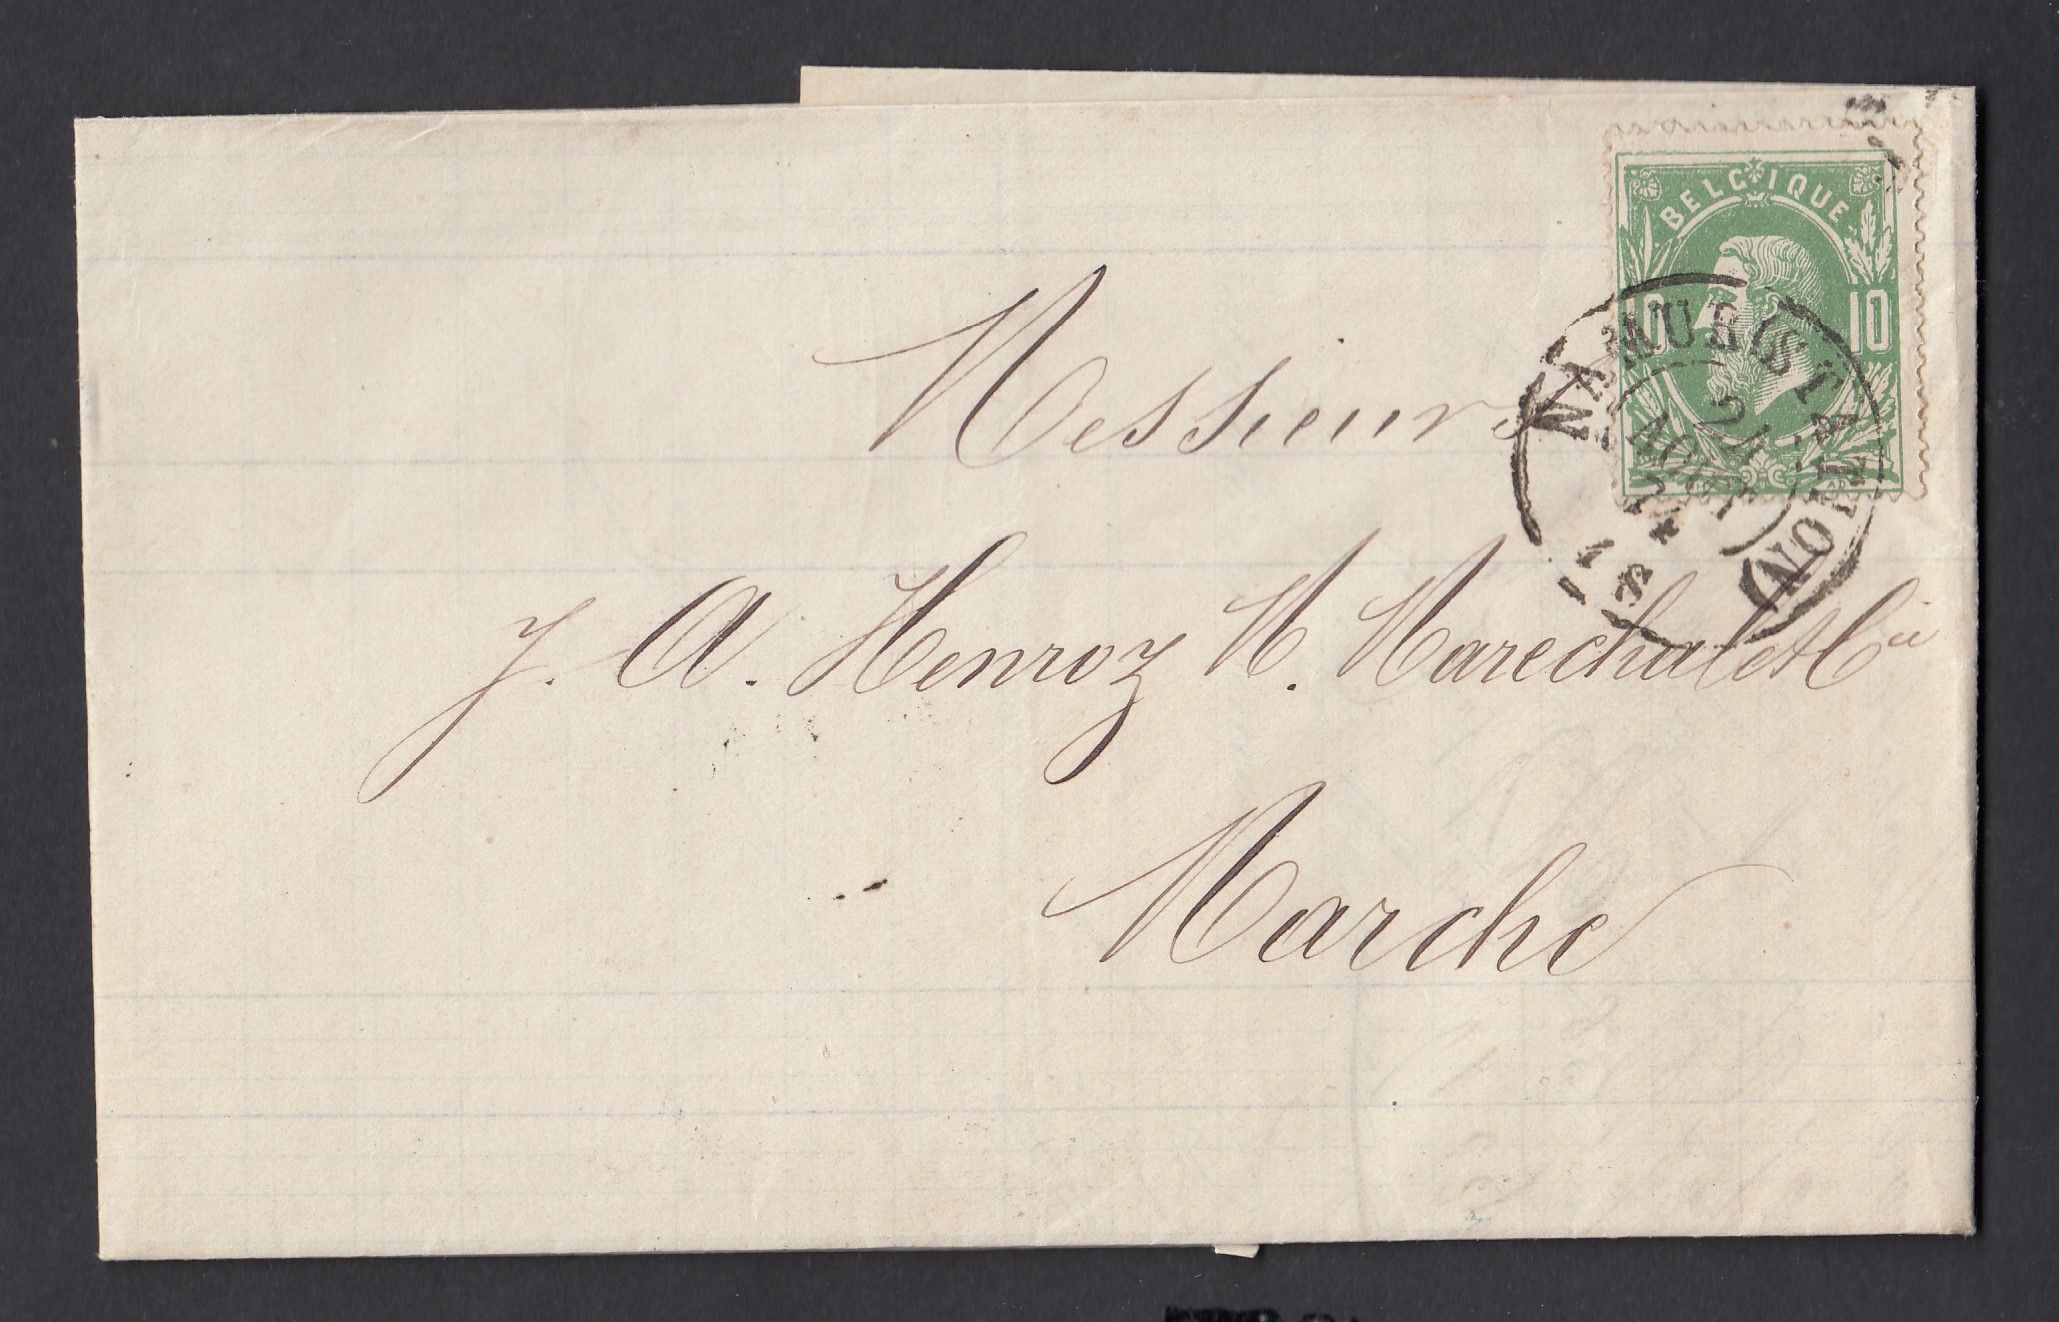 BELGIQUE
10 10
NAMUR (STATION)
24
AOUT
Messieurs
J. A. Henroz N. Marechal et Cie
Marche